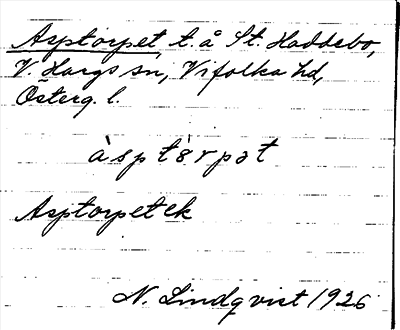 Asptorpet, t. å St. Haddebo,
V. Hargs sn, Vifolka hd,
Österg. l.
àsptèrpət
Asptorpet ek
N. Lindqvist 1926